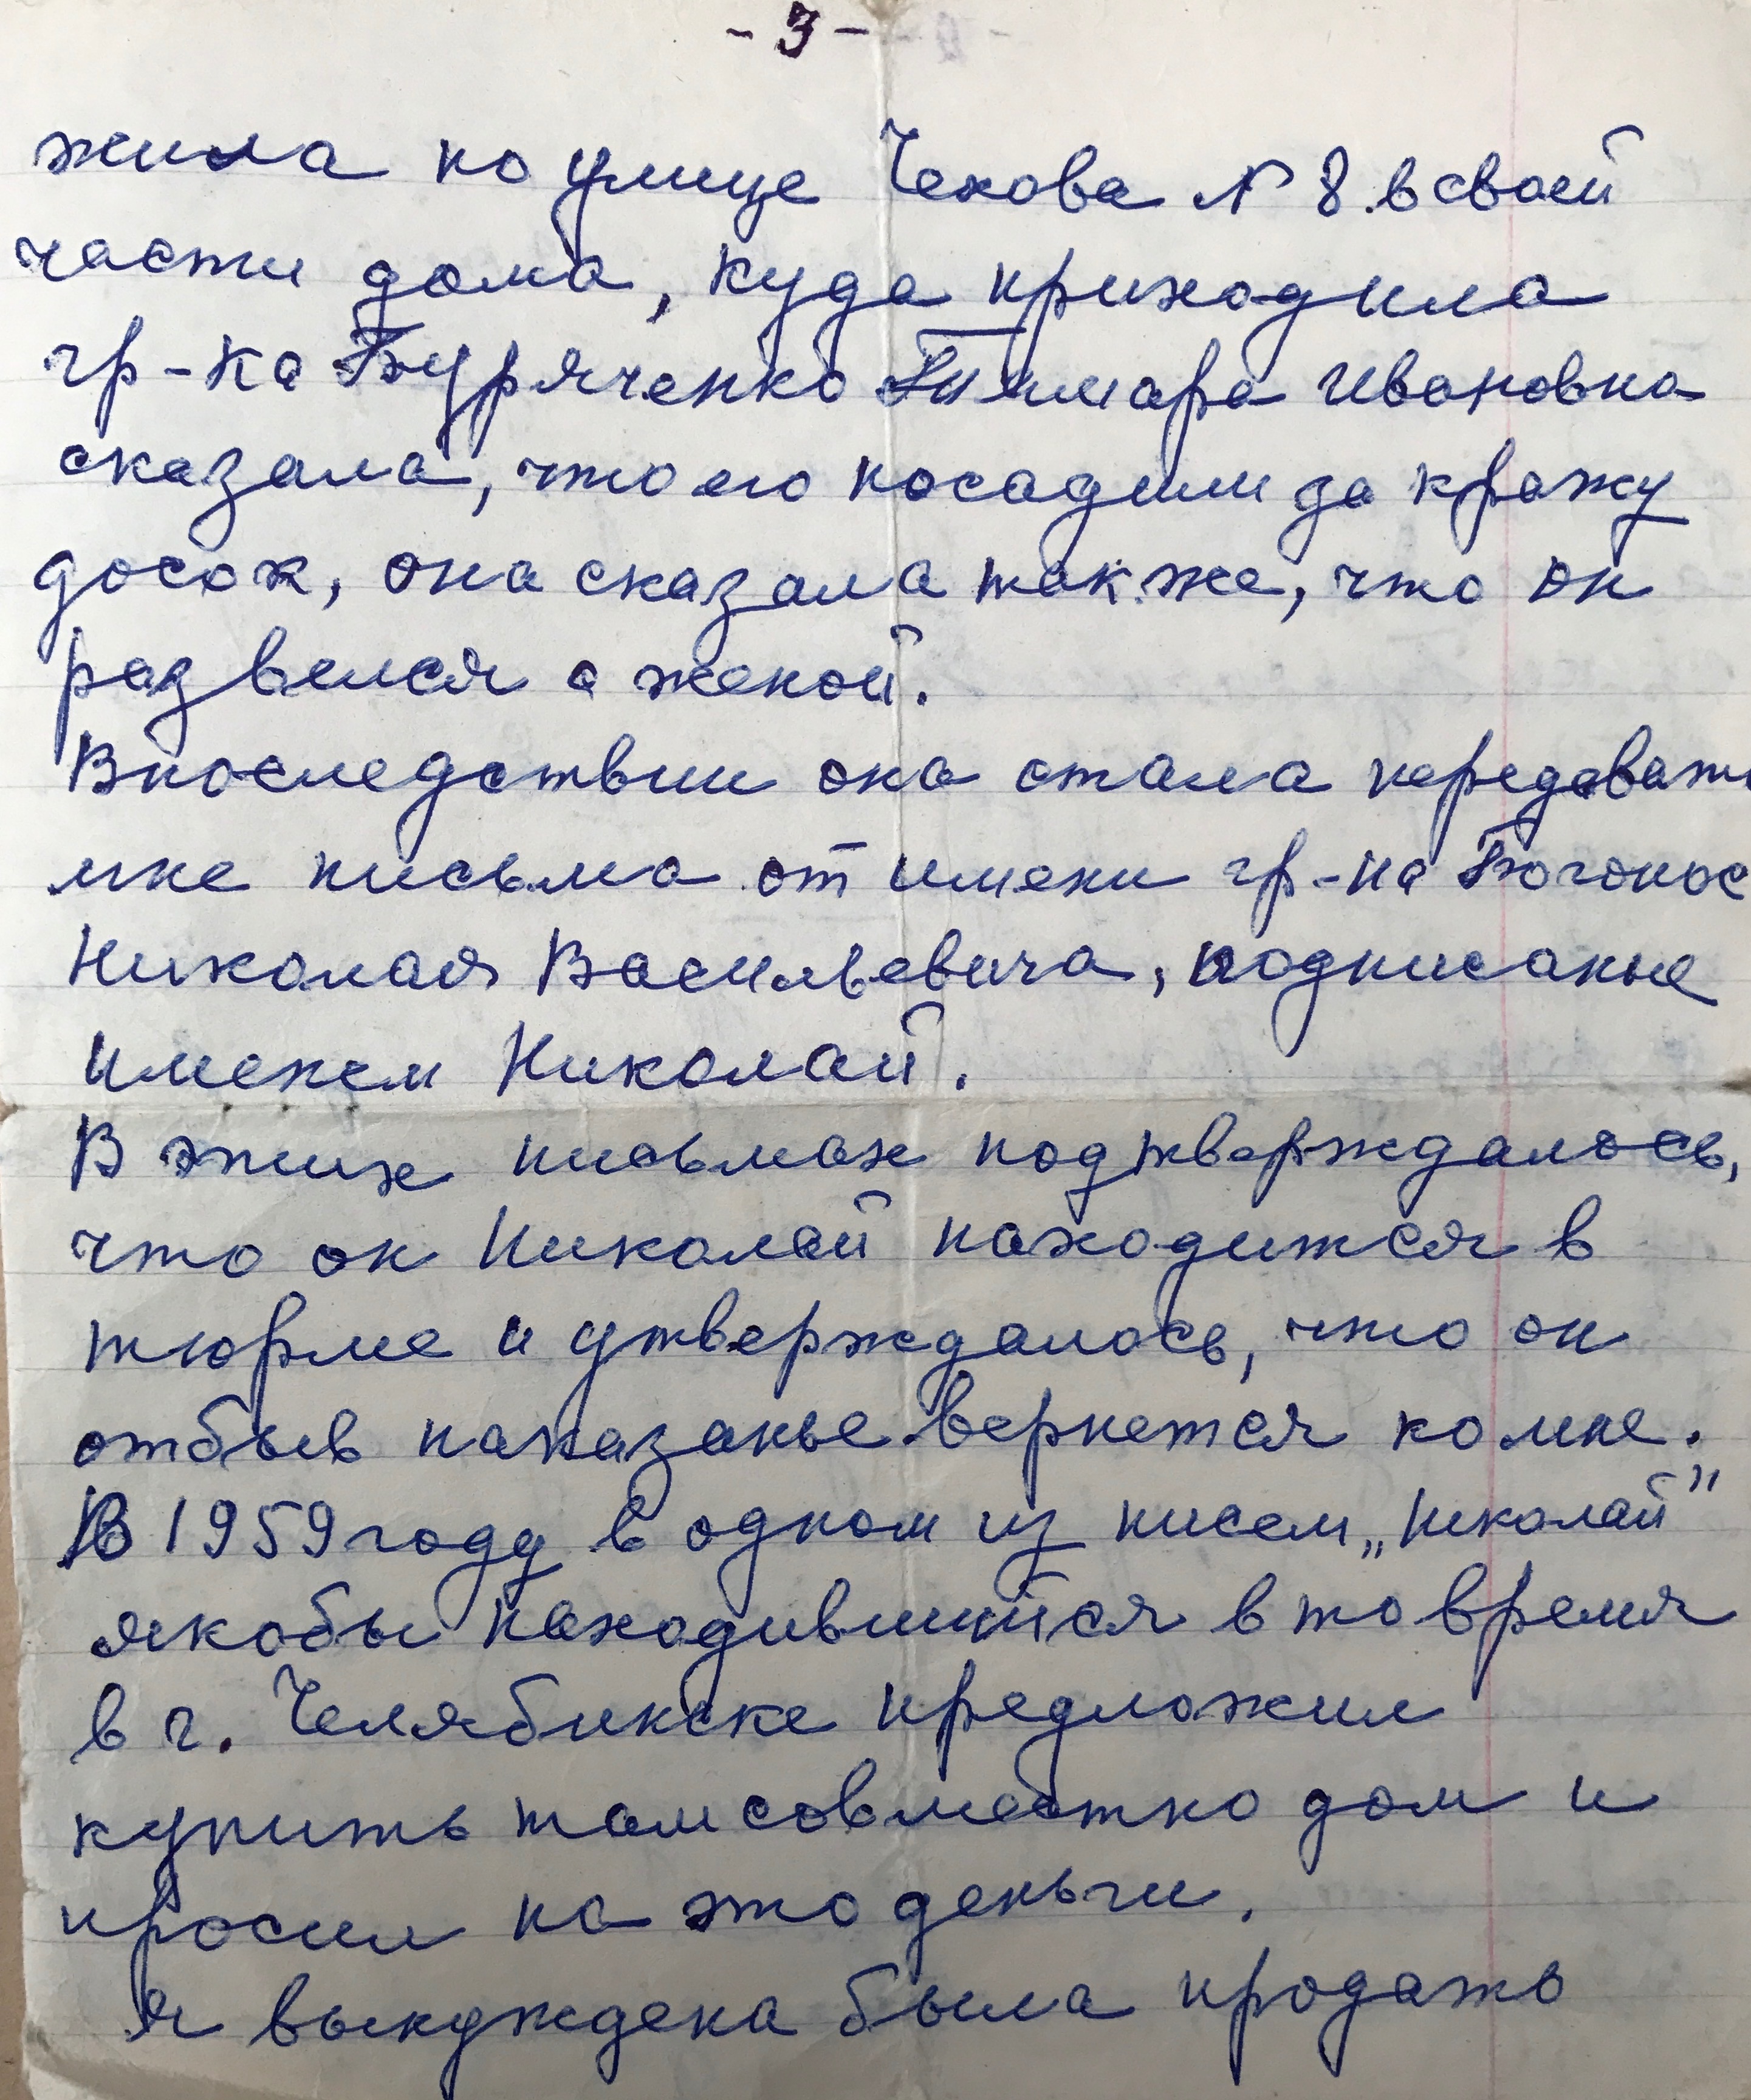 - 3 -
жила по улице Чехова N 8 в своей
части дома, куда приходила
гр-ка Буряченко Тамара Ивановна
сказала, что его посадили за кражу
досок, она сказала так же, что он
развелся с женой.
Впоследствии она стала передавать
мне письма от имени гр-на Богонос
Николая Васильевича, подписаные
именем Николай.
В этих письмах подтверждалось,
что он Николай находится в
тюрме и утверждалось, что он
отбыв наказанье вернется ко мне.
В 1959 году в одном из писем „Николай"
якобы находившийся в то время
в г. Челябинске предложил
купить там совместно дом и
просил на это деньги.
Я вынуждена была продать